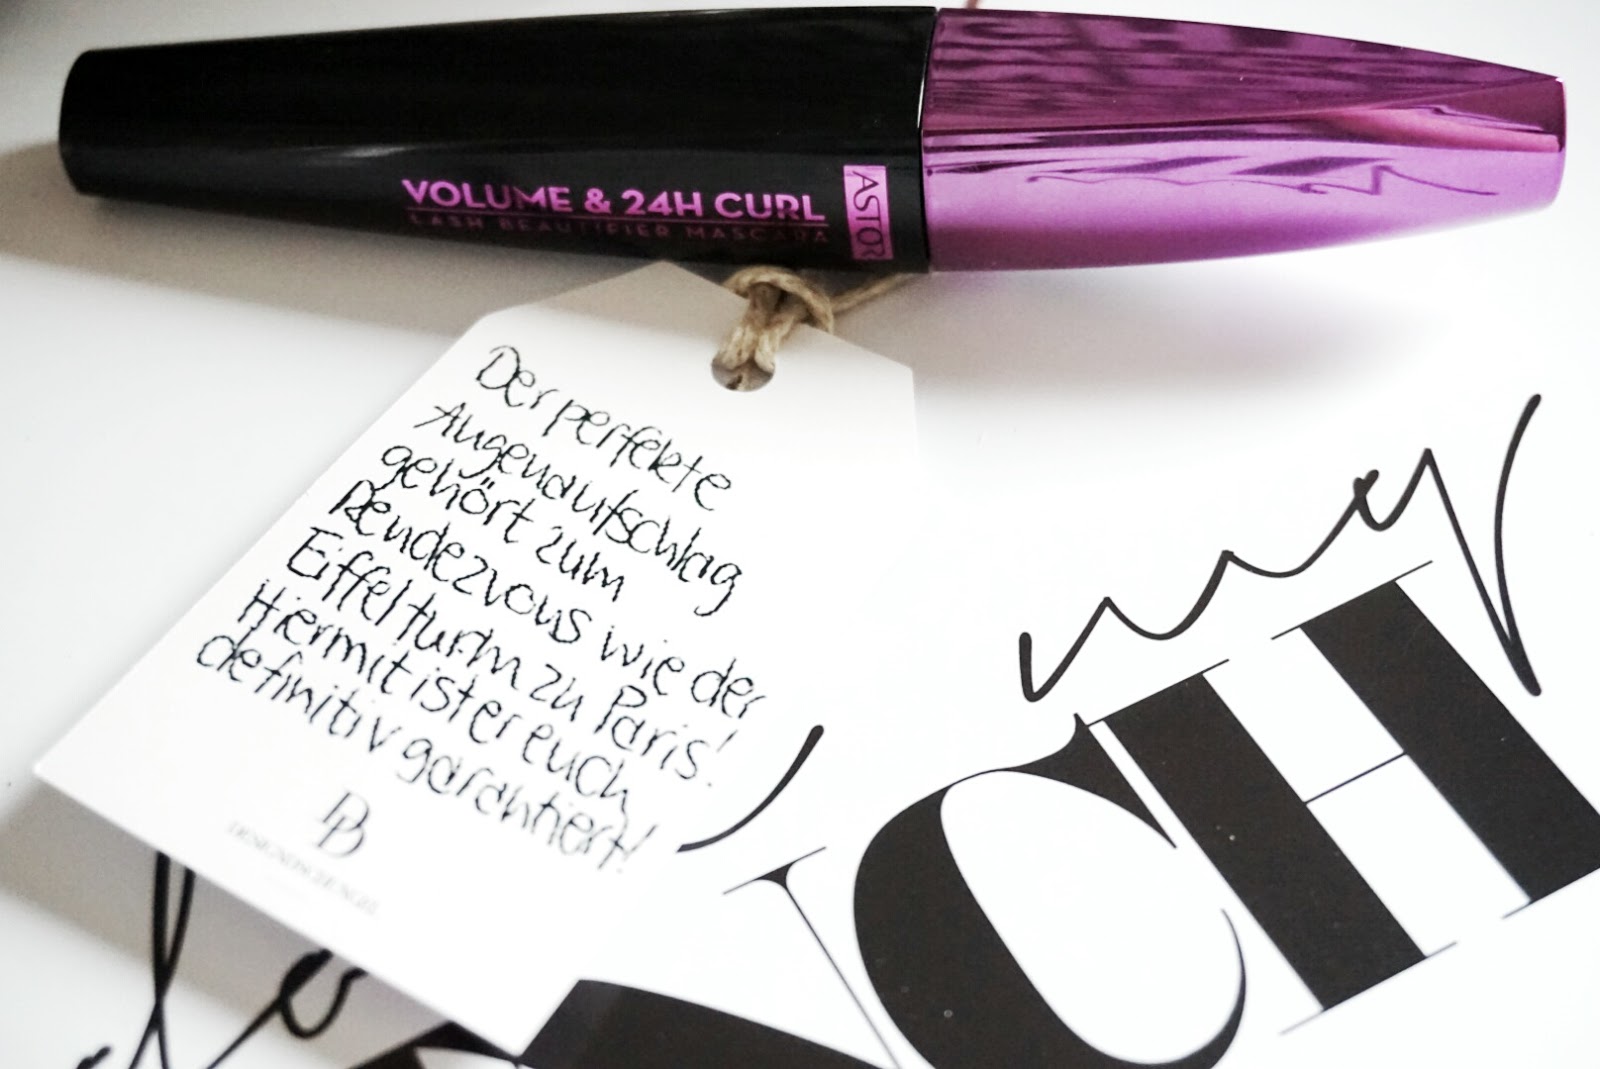 VOLUME & 24H CURL
LASH BEAUTIFIER MASCARA
ASTOR
Der perfekte
Augenaufschlag
gehört zum
Rendezvous wie der
Eiffelturm zu Paris!
Hiermit ist er euch
definitiv garantiert!
DESIGNDSCHUNGEL
my
CH